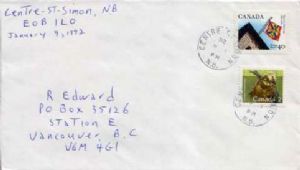 Centre-St-Simon, NB
E0B 1L0
January 9, 1992
CANADA
40
CENTRE
N.B.
PM
Canada 2
R Edward
PO Box 35126
Station E
Vancouver B.C
V6M 4G1